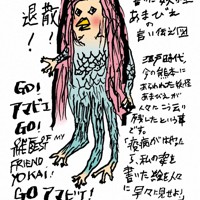 退散!
GO!
アマビエ
GO!
THE BEST
OF MY
FRIEND
YOKAI!
GO アマビエ!
あまびえ
の
言い伝え図
江戸時代、
今の熊本に
あらわれた妖怪
あまびえが
残したという
「疫病が出たら
私の姿を
書いた絵を人々
に早々に見せよ」